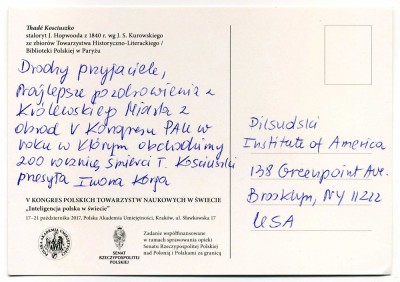 Thadé Kosciuszko
staloryt J. Hopwooda z 1840 r. wg J. S. Kurowskiego
ze zbiorów Towarzystwa Historyczno-Literackiego /
Biblioteki Polskiej w Paryżu
Drodzy przyjaciele,
Najlepsze pozdrowienia z
Królewskiego Miasta z
obrad V Kongresu PAU w
roku w którym obchodzimy
200 rocznicę śmierci T. Kościuszki
przesyła Iwona Korga
V KONGRES POLSKICH TOWARZYSTW NAUKOWYCH W ŚWIECIE
„Inteligencja polska w świecie"
17–21 października 2017, Polska Akademia Umiejętności, Kraków, ul. Sławkowska 17
SENAT
RZECZYPOSPOLITEJ
POLSKIEJ
Zadanie współfinansowane
w ramach sprawowania opieki
Senatu Rzeczypospolitej Polskiej
nad Polonią i Polakami za granicą
Pilsudski
Institute of America
138 Greenpoint Ave.
Brooklyn, NY 11222
USA